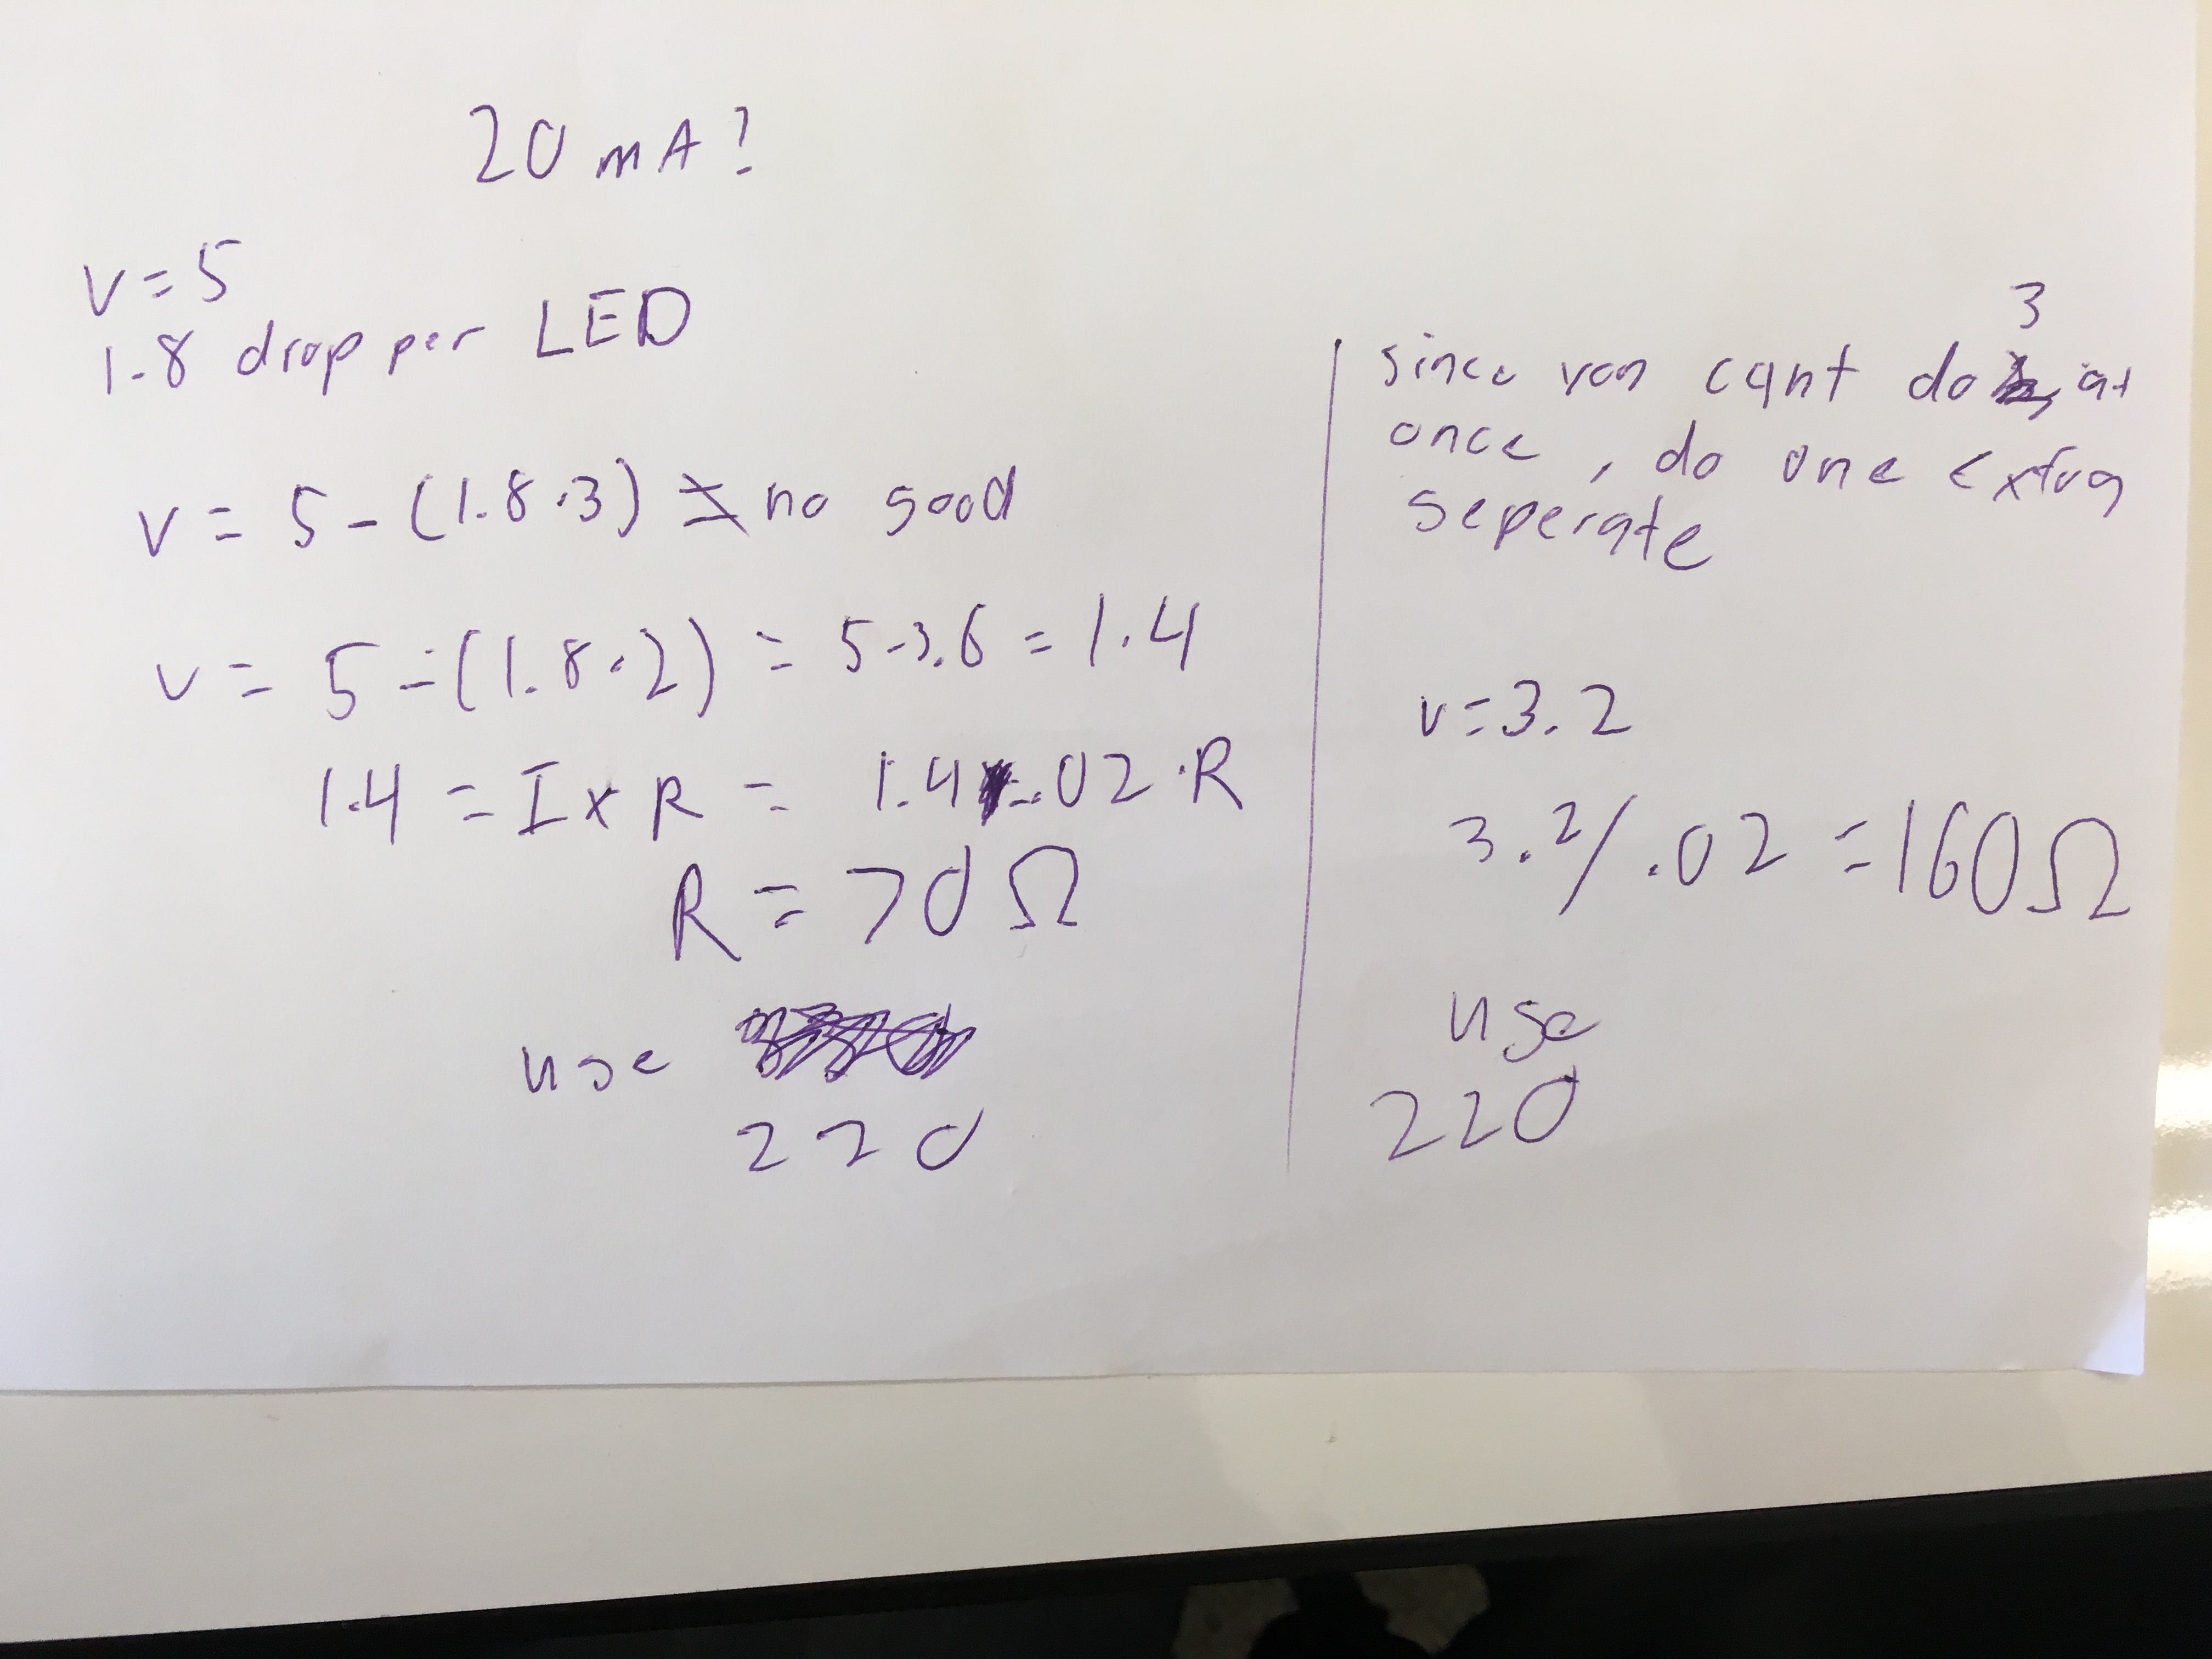 20 mA?
V=5
1.8 drop per LED
V = 5 - (1.8·3) no good
V = 5 - (1.8·2) = 5-3.6 = 1.4
1.4 = I x R = 1.4 = .02·R
R = 70Ω
use
220
since you cant do 3 at
once, do one extra
seperate
V=3.2
3.2/.02 = 160Ω
use
220